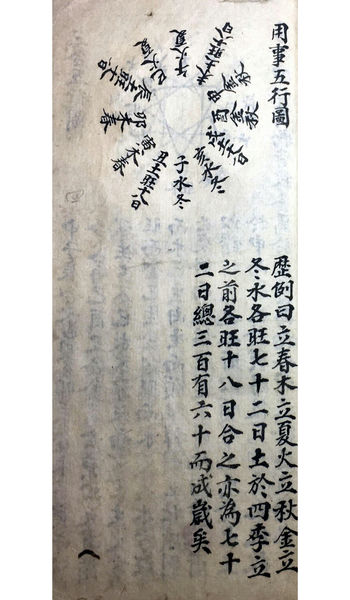 用事五行圖
子水冬
丑土旺十八日
寅木春
卯木春
辰土旺十八日
巳火夏
午火夏
未土旺十八日
申金秋
酉金秋
戌土旺十八日
亥水冬
歴例曰立春木立夏火立秋金立
冬水各旺七十二日土於四季立
之前各旺十八日合之亦為七十
二日總三百有六十而成歲矣